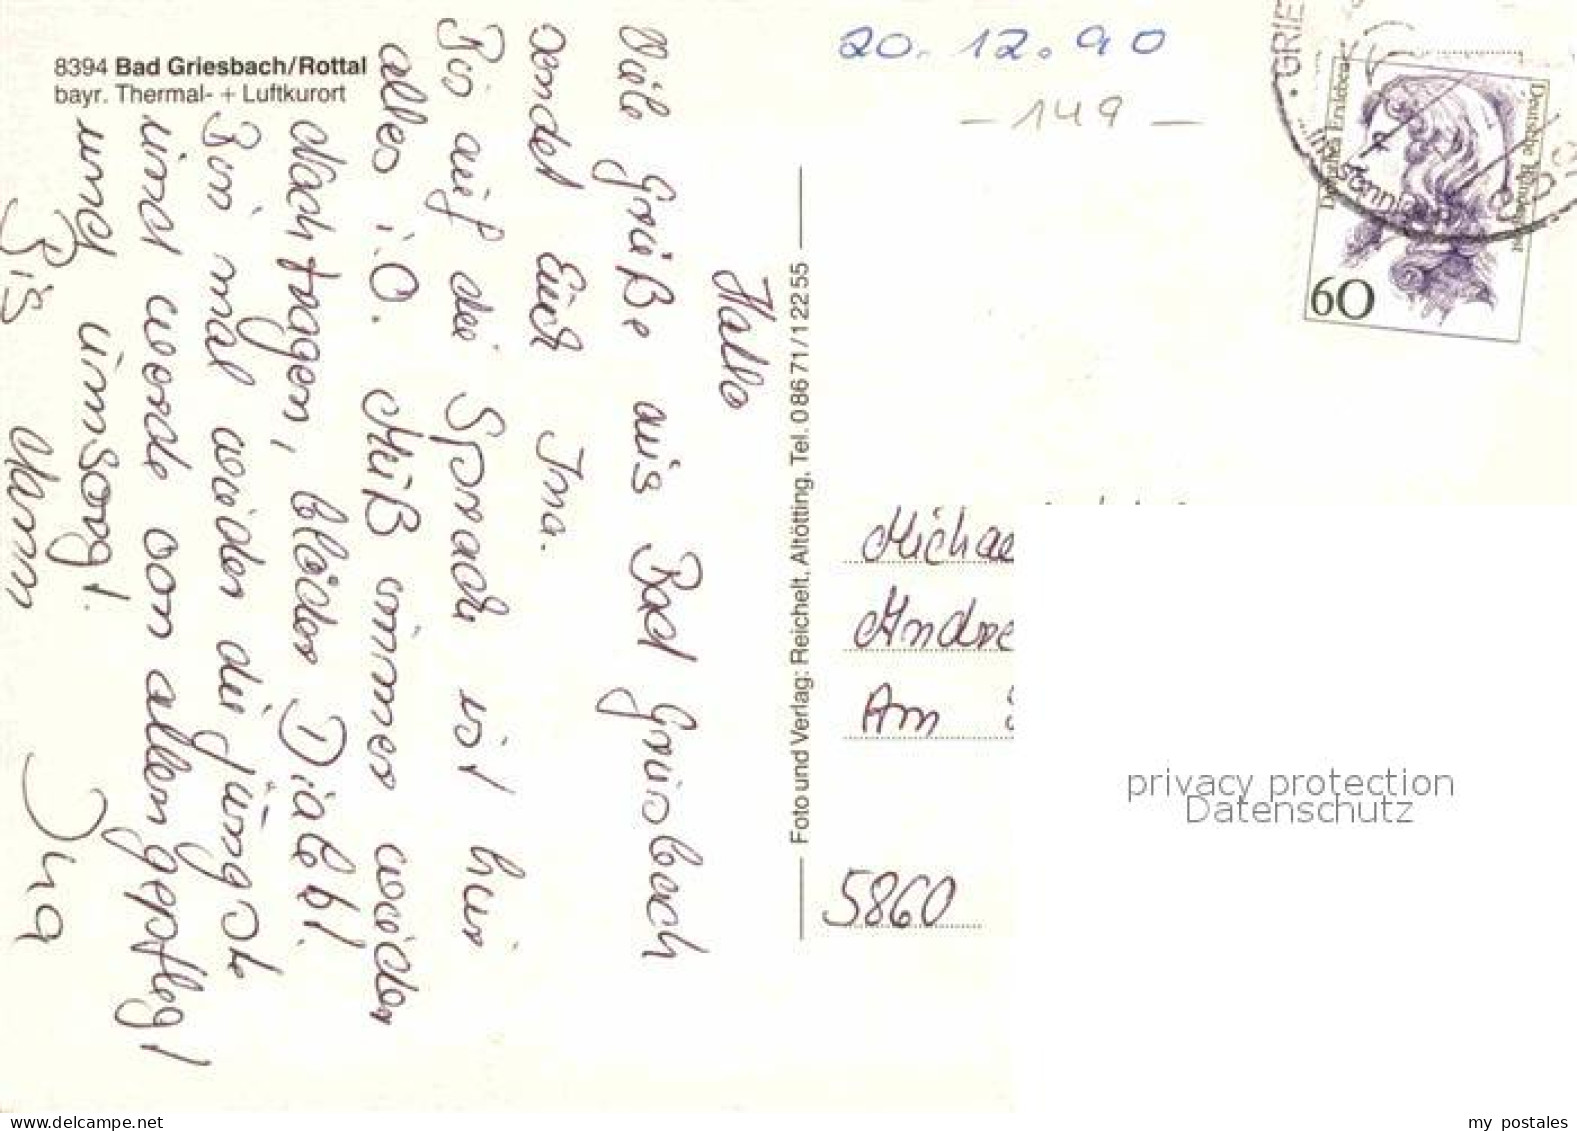 8394 Bad Griesbach/Rottal
bayr. Thermal- + Luftkurort
20.12.90
- 149 -
Hallo
Viele Grüße aus Bad Griesbach
sendet Euch Ina.
Bis auf die Sprache ist hier
alles i.O. Muß immer wieder
nachfragen, blöder Dialekt!
Bin mal wieder die jüngste
und werde von allen gepflegt
und umsorgt!
Bis dann
Ina
Foto und Verlag: Reichelt, Altötting, Tel. 08671/12255
GRIE
Deutsche Bundespost
60
Michae
Andre
Am
5860
privacy protection
Datenschutz
www.delcampe.net
my postales